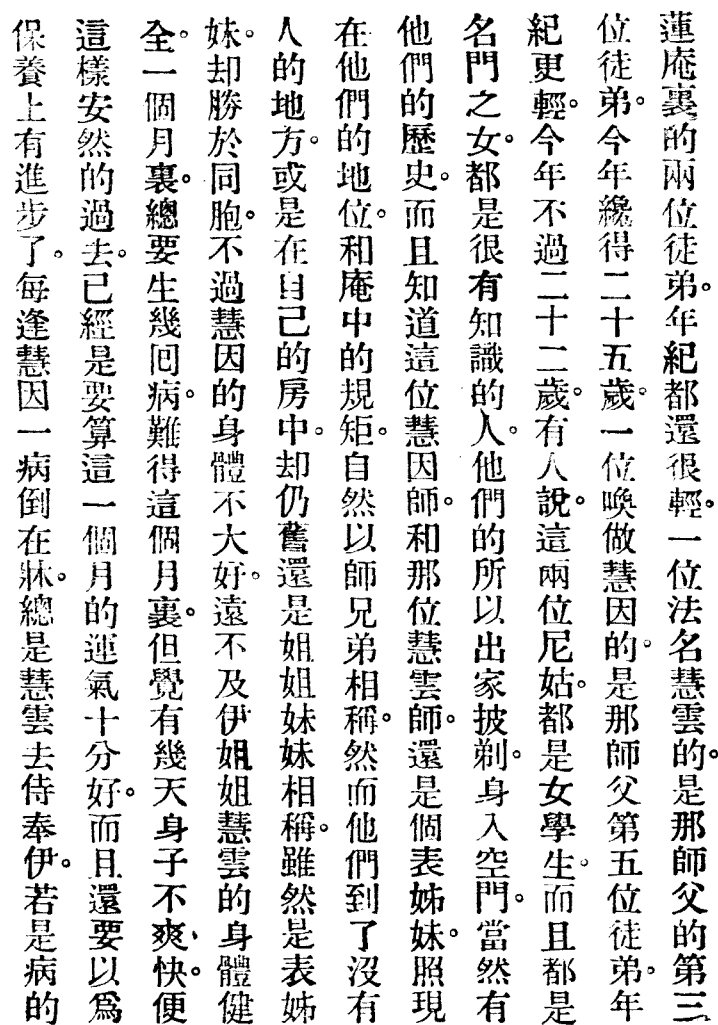 蓮庵裏的兩位徒弟。年紀都還很輕。一位法名慧雲的。是那師父的第三
位徒弟。今年纔得二十五歲。一位喚做慧因的。是那師父第五位徒弟。年
紀更輕。今年不過二十二歲。有人說。這兩位尼姑。都是女學生。而且都是
名門之女。都是很有知識的人。他們的所以出家披剃。身入空門。當然有
他們的歷史。而且知道這位慧因師。和那位慧雲師。還是個表姊妹。照現
在他們的地位。和庵中的規矩。自然以師兄弟相稱。然而他們到了沒有
人的地方。或是在自己的房中。却仍舊還是姐姐妹妹相稱。雖然是表姊
妹。却勝於同胞。不過慧因的身體不大好。遠不及伊姐姐慧雲的身體健
全。一個月裏。總要生幾囘病。難得這個月裏。但覺有幾天身子不爽快。便
這樣安然的過去。已經是要算這一個月的運氣十分好。而且還要以爲
保養上有進步了。每逢慧因一病倒在牀。總是慧雲去侍奉伊。若是病的